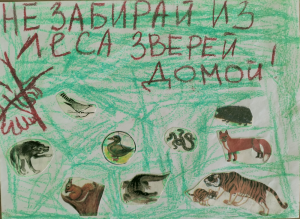 НЕ ЗАБИРАЙ ИЗ
ЛЕСА ЗВЕРЕЙ
ДОМОЙ!